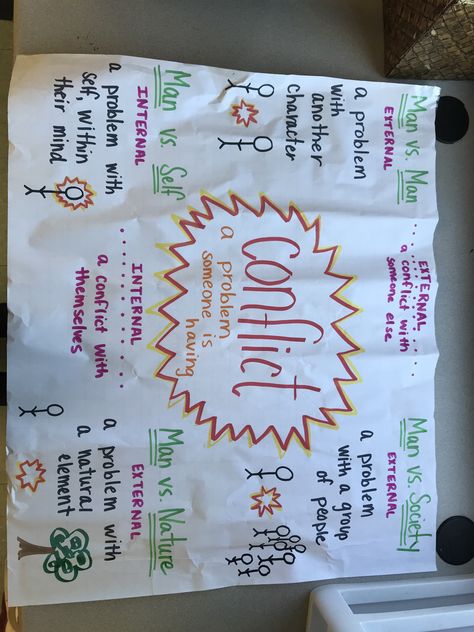 Man vs. Man
EXTERNAL
a problem
with
another
character
EXTERNAL
a conflict with
someone else
Man vs. Society
EXTERNAL
a problem
with a group
of people
Conflict
a problem
someone is
having
Man vs. Self
INTERNAL
a problem with
self, within
their mind
INTERNAL
a conflict with
themselves
Man vs. Nature
EXTERNAL
a problem with
a natural
element